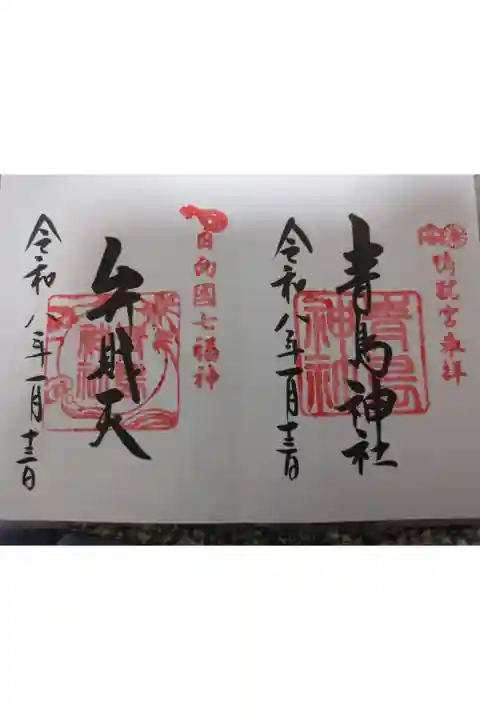 鴨就宮奉拝
青島神社
青島神社
令和八年一月十三日
日向國七福神
弁財天
青島神社
令和八年一月十三日